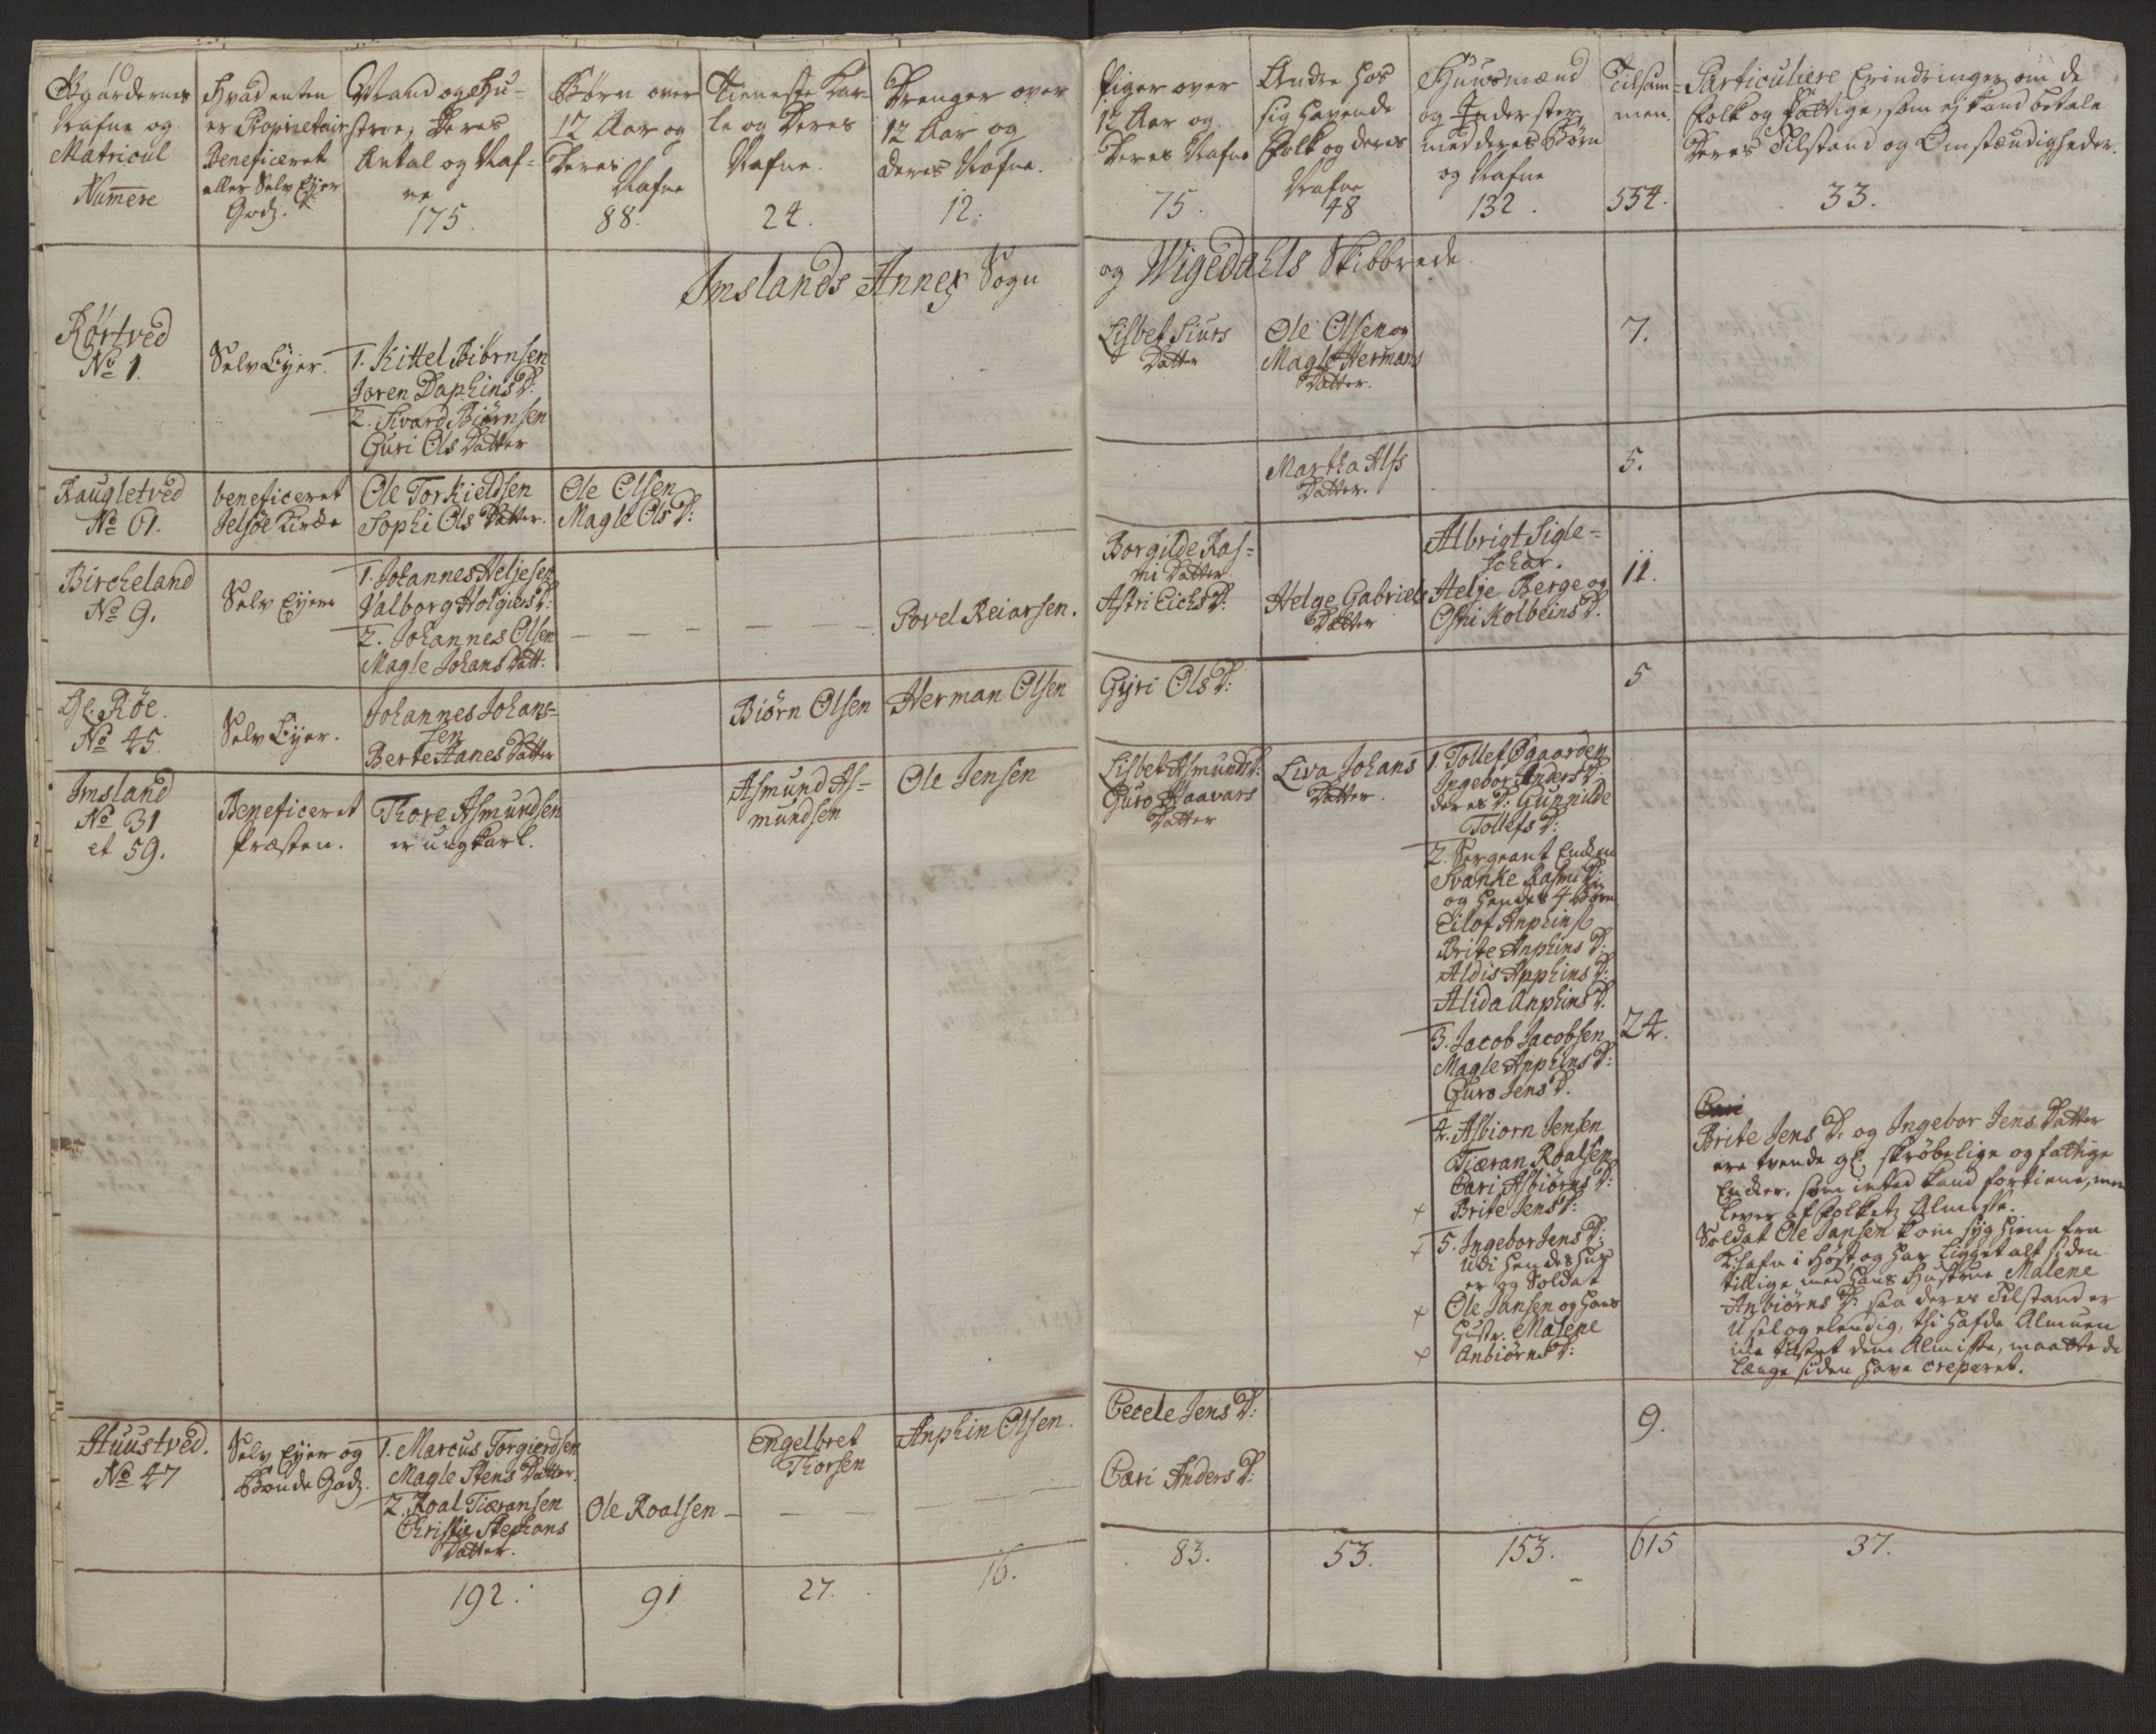 Gaardernes
Nafne og
Matricul
Numere
Hvad enten
er Proprietair
Beneficeret
eller Selv Eyer
Godz.
Mand og Hu-
stroe, deres
Antal og Naf-
ne
175.
Børn over
12 Aar og
deres
Nafne
88.
Tieneste Kar-
le og deres
Nafne.
24.
Drenger over
12 Aar og
deres Nafne.
12.
Piger over
12 Aar og
deres Nafne
75.
Andre hos
sig havende
Folk og deres
Nafne
48
Huusmænd
og Inderster
med deres Børn
og Nafne
132.
Tilsam-
men.
554.
Particuliere Erindringer om de
Folk og Fattige, som ej kand betale
deres Tilstand og Omstændigheder.
33.
Imslands Annex Sogn
og Wigedahls Skibbrede.
Rörtved
No 1.
Selv Eyer.
1. Kittel Biörnsen
Joren Daphins D:
2. Sivard Biörnsen
Guri Ols Datter
Lisbet Siurs
Datter
Ole Olsen og
Magle Hermans
Datter.
7.
Raugletved
No 61.
beneficeret
Jelsöe Kirke
Ole Torkieldsen
Sophi Ols Datter.
Ole Olsen
Magle Ols D:
Martha Alfs
Datter.
5.
Bircheland
No 9.
Selv Eyere
1. Johannes Heljesen
Valborg Holgiers D:
2. Johannes Olsen
Magle Johans Datt:
Povel Reiarsen.
Borgilde Ras-
mi Datter
Astri Eichs D:
Helge Gabriels
Datter
Albrigt Sigle-
schar.
Helje Berge og
Ostri Kolbeins D.
11.
Gl. Röe.
No 45.
Selv Eyer.
Johannes Johans-
sen
Berte Hanes Datter
Biörn Olsen
Herman Olsen
Gyri Ols D:
5
Imsland
No 31
et 59.
Beneficeret
Præsten.
Thore Asmundsen
er ung Karl.
Asmund As-
mundsen
Ole Jensen
Lisbet Asmunds D:
Guro Haavars
Datter
Liva Johans
Datter.
1. Tollef Ögaarden
Ingebor Anders D:
deres D: Gunnilde
Tollefs D:
2. Sergeant Enken
Svanke Rasmi D:
og hendes 4 Börn
Eilof Anphins
Brite Anphins D:
Aldis Anphins D:
Alida Anphins D.
3. Jacob Jacobsen
Magle Anphins D:
Guro Jens D.
4. Asbiorn Jensen
Tiæran Roalsen
Cari Asbiörns D:
+ Brite Jens D:
+ 5. Ingebor Jens D:
udi hendes Huus
er og Soldat
+ Ole Jansen og hans
Hustr. Malene
+ Anbiörns D:
24.
Brite Jens D: og Ingebor Jens Datter
ere tvende gl: skröbelige og fattige
Enker, som intet kand fortiene, men
lever af Folkets Almisse.
Soldat Ole Jansen kom syg hiem fra
i Höst, og har ligget alt siden
tillige med hans Hustrue Malene
Anbiörns D: saa deres Tilstand er
Usel og elendig, thi hafde Almuen
icke tilstet dem Almisse, maatte de
længe siden have creperet.
Huustved.
No 47
Selv Eyer og
Bonde Godz.
1. Marcus Torgierdsen
Magle Stens Datter.
2. Roal Tiæransen
Christie Stephans
Datter.
Ole Roalsen
Engelbret
Thorsen
Anphin Olsen.
Cecele Jens D:
Cari Anders D:
9.
192.
91
27.
16.
83.
53.
153.
615
37.